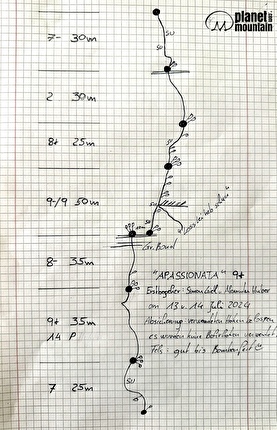 planet
mountain
7- 30m
SU
SU
2 30m
8+ 25m
9-/9 50m
SU
Gr. Band
8- 35m
"APASSIONATA" 9+
Erstbegeher: Simon Gietl, Alexander Huber
am 13 u. 14 Juli 2024
9+ 35m
14 P
Absicherung
es wurden keine Bohrhaken verwendet.
Fels: gut bis Bombenfest
SU
7 25m